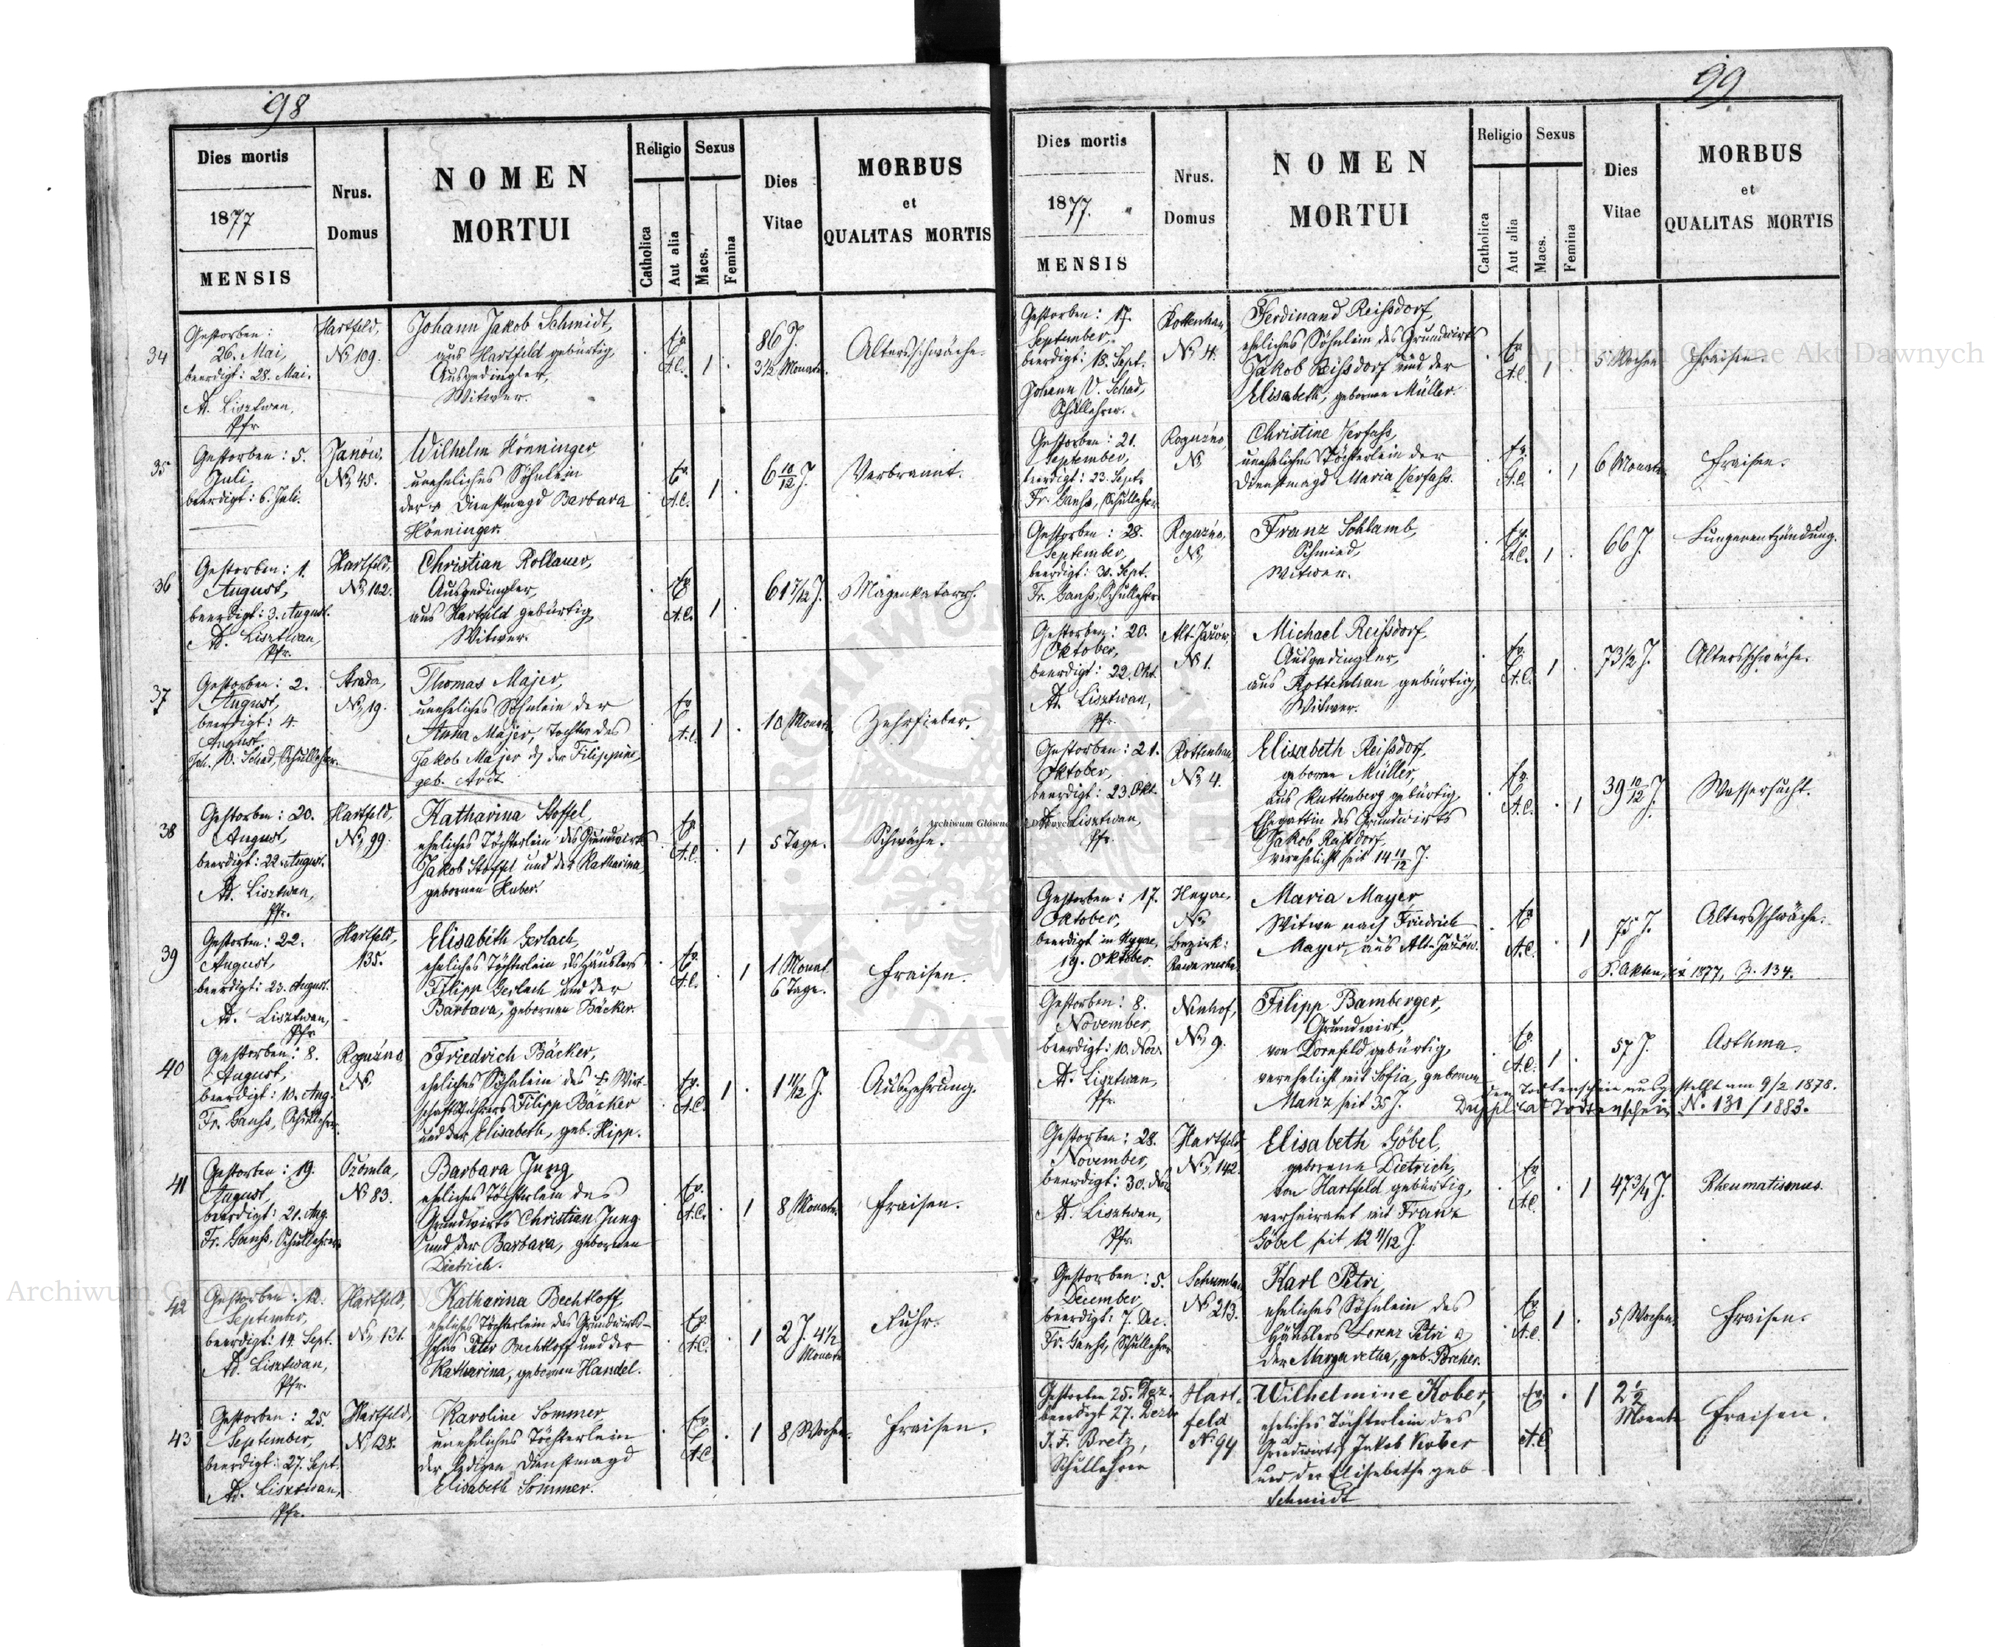 98
Dies mortis
1877
MENSIS
Nrus.
Domus
NOMEN
MORTUI
Religio
Catholica
Aut alia
Sexus
Macs.
Femina
Dies
Vitae
MORBUS
et
QUALITAS MORTIS
34
Gestorben:
26. Mai,
beerdigt: 28. Mai.
Ad. Lisztwan,
Pfr.
Hartfeld,
No 109.
Johann Jakob Schmidt,
aus Hartfeld gebürtig,
Ausgedingler,
Witwer.
Ev.
A.C.
1
86 J.
3½ Monate.
Altersschwäche.
35
Gestorben: 5.
Juli,
beerdigt: 6. Juli.
Janów,
No 45.
Wilhelm Hönninger,
uneheliches Söhnlein
der Dienstmagd Barbara
Hönninger.
Ev.
A.C.
1
6 10/12 J.
Verbrannt.
36
Gestorben: 1.
August,
beerdigt: 3. August.
Ad. Lisztwan,
Pfr.
Hartfeld,
No 102.
Christian Rollauer,
Ausgedingler,
aus Hartfeld gebürtig,
Witwer.
Ev.
A.C.
1
61 7/12 J.
Magenkatarrh.
37
Gestorben: 2.
August,
beerdigt: 4.
August.
Joh. V. Schad, Schullehrer.
Strada,
No 19.
Thomas Majer,
uneheliches Söhnlein der
Anna Majer, Tochter des
Jakob Majer u. der Filippine,
geb. Ardt.
Ev.
A.C.
1
10 Monate
Zehrfieber.
38
Gestorben: 20.
August,
beerdigt: 22. August.
Ad. Lisztwan,
Pfr.
Hartfeld,
No 99.
Katharina Stoffel,
eheliches Töchterlein des Grundwirts
Jakob Stoffel und der Katharina,
gebornen Huber.
Ev.
A.C.
1
5 Tage.
Schwäche.
39
Gestorben: 22.
August,
beerdigt: 23. August.
Ad. Lisztwan,
Pfr.
Hartfeld,
135.
Elisabeth Gerlach,
eheliches Töchterlein des Häuslers
Filipp Gerlach und der
Barbara, gebornen Bäcker.
Ev.
A.C.
1
1 Monat
6 Tage.
Fraisen.
40
Gestorben: 8.
August,
beerdigt: 10. Aug.
Fr. Ganss, Schullehrer.
Roguźno
No
Friedrich Bäcker,
eheliches Söhnlein des Wirt-
schaftsführers Filipp Bäcker
und der Elisabeth, geb. Hipp.
Ev.
A.C.
1
1 11/12 J.
Auszehrung.
41
Gestorben: 19.
August,
beerdigt: 21. Aug.
Fr. Ganss, Schullehrer.
Ożomla,
No 83.
Barbara Jung,
eheliches Töchterlein des
Grundwirts Christian Jung
und der Barbara, gebornen
Dietrich.
Ev.
A.C.
1
8 Monate.
Fraisen.
42
Gestorben: 12.
September,
beerdigt: 14. Sept.
Ad. Lisztwan,
Pfr.
Hartfeld,
No 131.
Katharina Bechtloff,
eheliches Töchterlein des Grundwirts-
sohns Peter Bechtloff und der
Katharina, gebornen Handel.
Ev.
A.C.
1
2 J. 4½
Monate
Ruhr.
43
Gestorben: 25.
September,
beerdigt: 27. Sept.
Ad. Lisztwan,
Pfr.
Hartfeld,
No 138.
Karoline Sommer,
uneheliches Töchterlein
der ledigen Dienstmagd
Elisabeth Sommer.
Ev.
A.C.
1
8 Wochen.
Fraisen.
99
Dies mortis
1877.
MENSIS
Nrus.
Domus
NOMEN
MORTUI
Religio
Catholica
Aut alia
Sexus
Macs.
Femina
Dies
Vitae
MORBUS
et
QUALITAS MORTIS
Gestorben: 17.
September,
beerdigt: 18. Sept.
Johann V. Schad,
Schullehrer.
Rottenhan
No 4.
Ferdinand Reißdorf,
eheliches Söhnlein des Grundwirts
Jakob Reißdorf und der
Elisabeth, gebornen Müller.
Ev.
A.C.
1
5 Wochen
Fraisen.
Gestorben: 21.
September,
beerdigt: 23. Sept.
Fr. Ganss, Schullehrer
Roguźno,
No
Christine
uneheliches Töchterlein der
Dienstmagd Maria
Ev.
A.C.
1
6 Monate
Fraisen.
Gestorben: 28.
September,
beerdigt: 30. Sept.
Fr. Ganss, Schullehrer
Roguźno,
No
Franz Schlamb,
Schmied,
Witwer.
Ev.
A.C.
1
66 J.
Lungenentzündung.
Gestorben: 20.
Oktober,
beerdigt: 22. Okt.
Ad. Lisztwan,
Pfr.
Alt-Jażów,
No 1.
Michael Reißdorf,
Ausgedingler,
aus Rottenhan gebürtig,
Witwer.
Ev.
A.C.
1
73½ J.
Altersschwäche.
Gestorben: 21.
Oktober,
beerdigt: 23. Okt.
Ad. Lisztwan,
Pfr.
Rottenhan,
No 4.
Elisabeth Reißdorf,
geborne Müller,
aus Kuttenberg gebürtig,
Ehegattin des Grundwirts
Jakob Reißdorf,
verehelicht seit 14 11/12 J.
Ev.
A.C.
1
39 10/12 J.
Wassersucht.
Gestorben: 17.
Oktober,
beerdigt in
19. Oktober.
No
Bezirk:
Rawa ruska
Maria Mayer,
Witwe nach Friedrich
Mayer, aus Alt-Jażów.
Ev.
A.C.
1
75 J.
Altersschwäche.
Akten, ex 1877, Z. 134.
Gestorben: 8.
November,
beerdigt: 10. Nov.
Ad. Lisztwan,
Pfr.
Neuhof,
No 9.
Filipp Bamberger,
Grundwirt,
von Dornfeld gebürtig,
verehelicht mit Sofia, gebornen
Manz seit 35 J.
Ev.
A.C.
1
57 J.
Asthma.
den Todtenschein ausgestellt am 9/2 1878.
Duplicat Todtenschein No 131/1883.
Gestorben: 28.
November,
beerdigt: 30. Nov.
Ad. Lisztwan,
Pfr.
Hartfeld,
No 142.
Elisabeth Göbel,
geborene Dietrich,
von Hartfeld gebürtig,
verheiratet mit Franz
Göbel seit 12 11/12 J.
Ev.
A.C.
1
47 3/4 J.
Rheumatismus.
Gestorben: 5.
December,
beerdigt: 7. Dec.
Fr. Ganss, Schullehrer
Schumlau
No 213.
Karl Petri,
eheliches Söhnlein des
Häuslers Lorenz Petri u.
der Margaretha, geb. Breher.
Ev.
A.C.
1
5 Wochen.
Fraisen.
Gestorben 25. Dez.
beerdigt 27. Dezbr
J. F. Bretz,
Schullehrer
Hart-
feld
No 94
Wilhelmine Kober,
eheliches Töchterlein des
Grundwirts Jakob Kober
und der Elisabetha geb
Schmidt
Ev.
A.C.
1
2 1/2
Monate
Fraisen.
Archiwum Główne Akt Dawnych
Archiwum Główne Akt Dawnych
Archiwum Główne Akt Dawnych